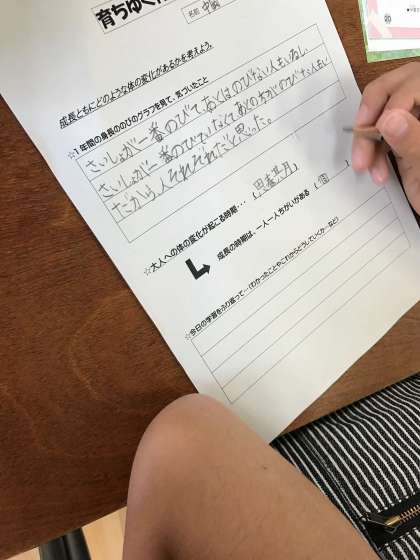 育ちゆく
名前
成長とともにどのような体の変化があるかを考えよう。
☆1年間の身長ののびのグラフを見て、気づいたこと
さいしょが一番のびてあとはのびない人もいるし
さいしょが一番のびていなくてあとの方がのびた人もい
だから人それぞれだと思った。
☆大人への体の変化が起こる時期・・・(思春期)
成長の時期は、一人一人ちがいがある (個
☆今日の学習をふり返って…(わかったことやこれからどうしていくか…など)
20